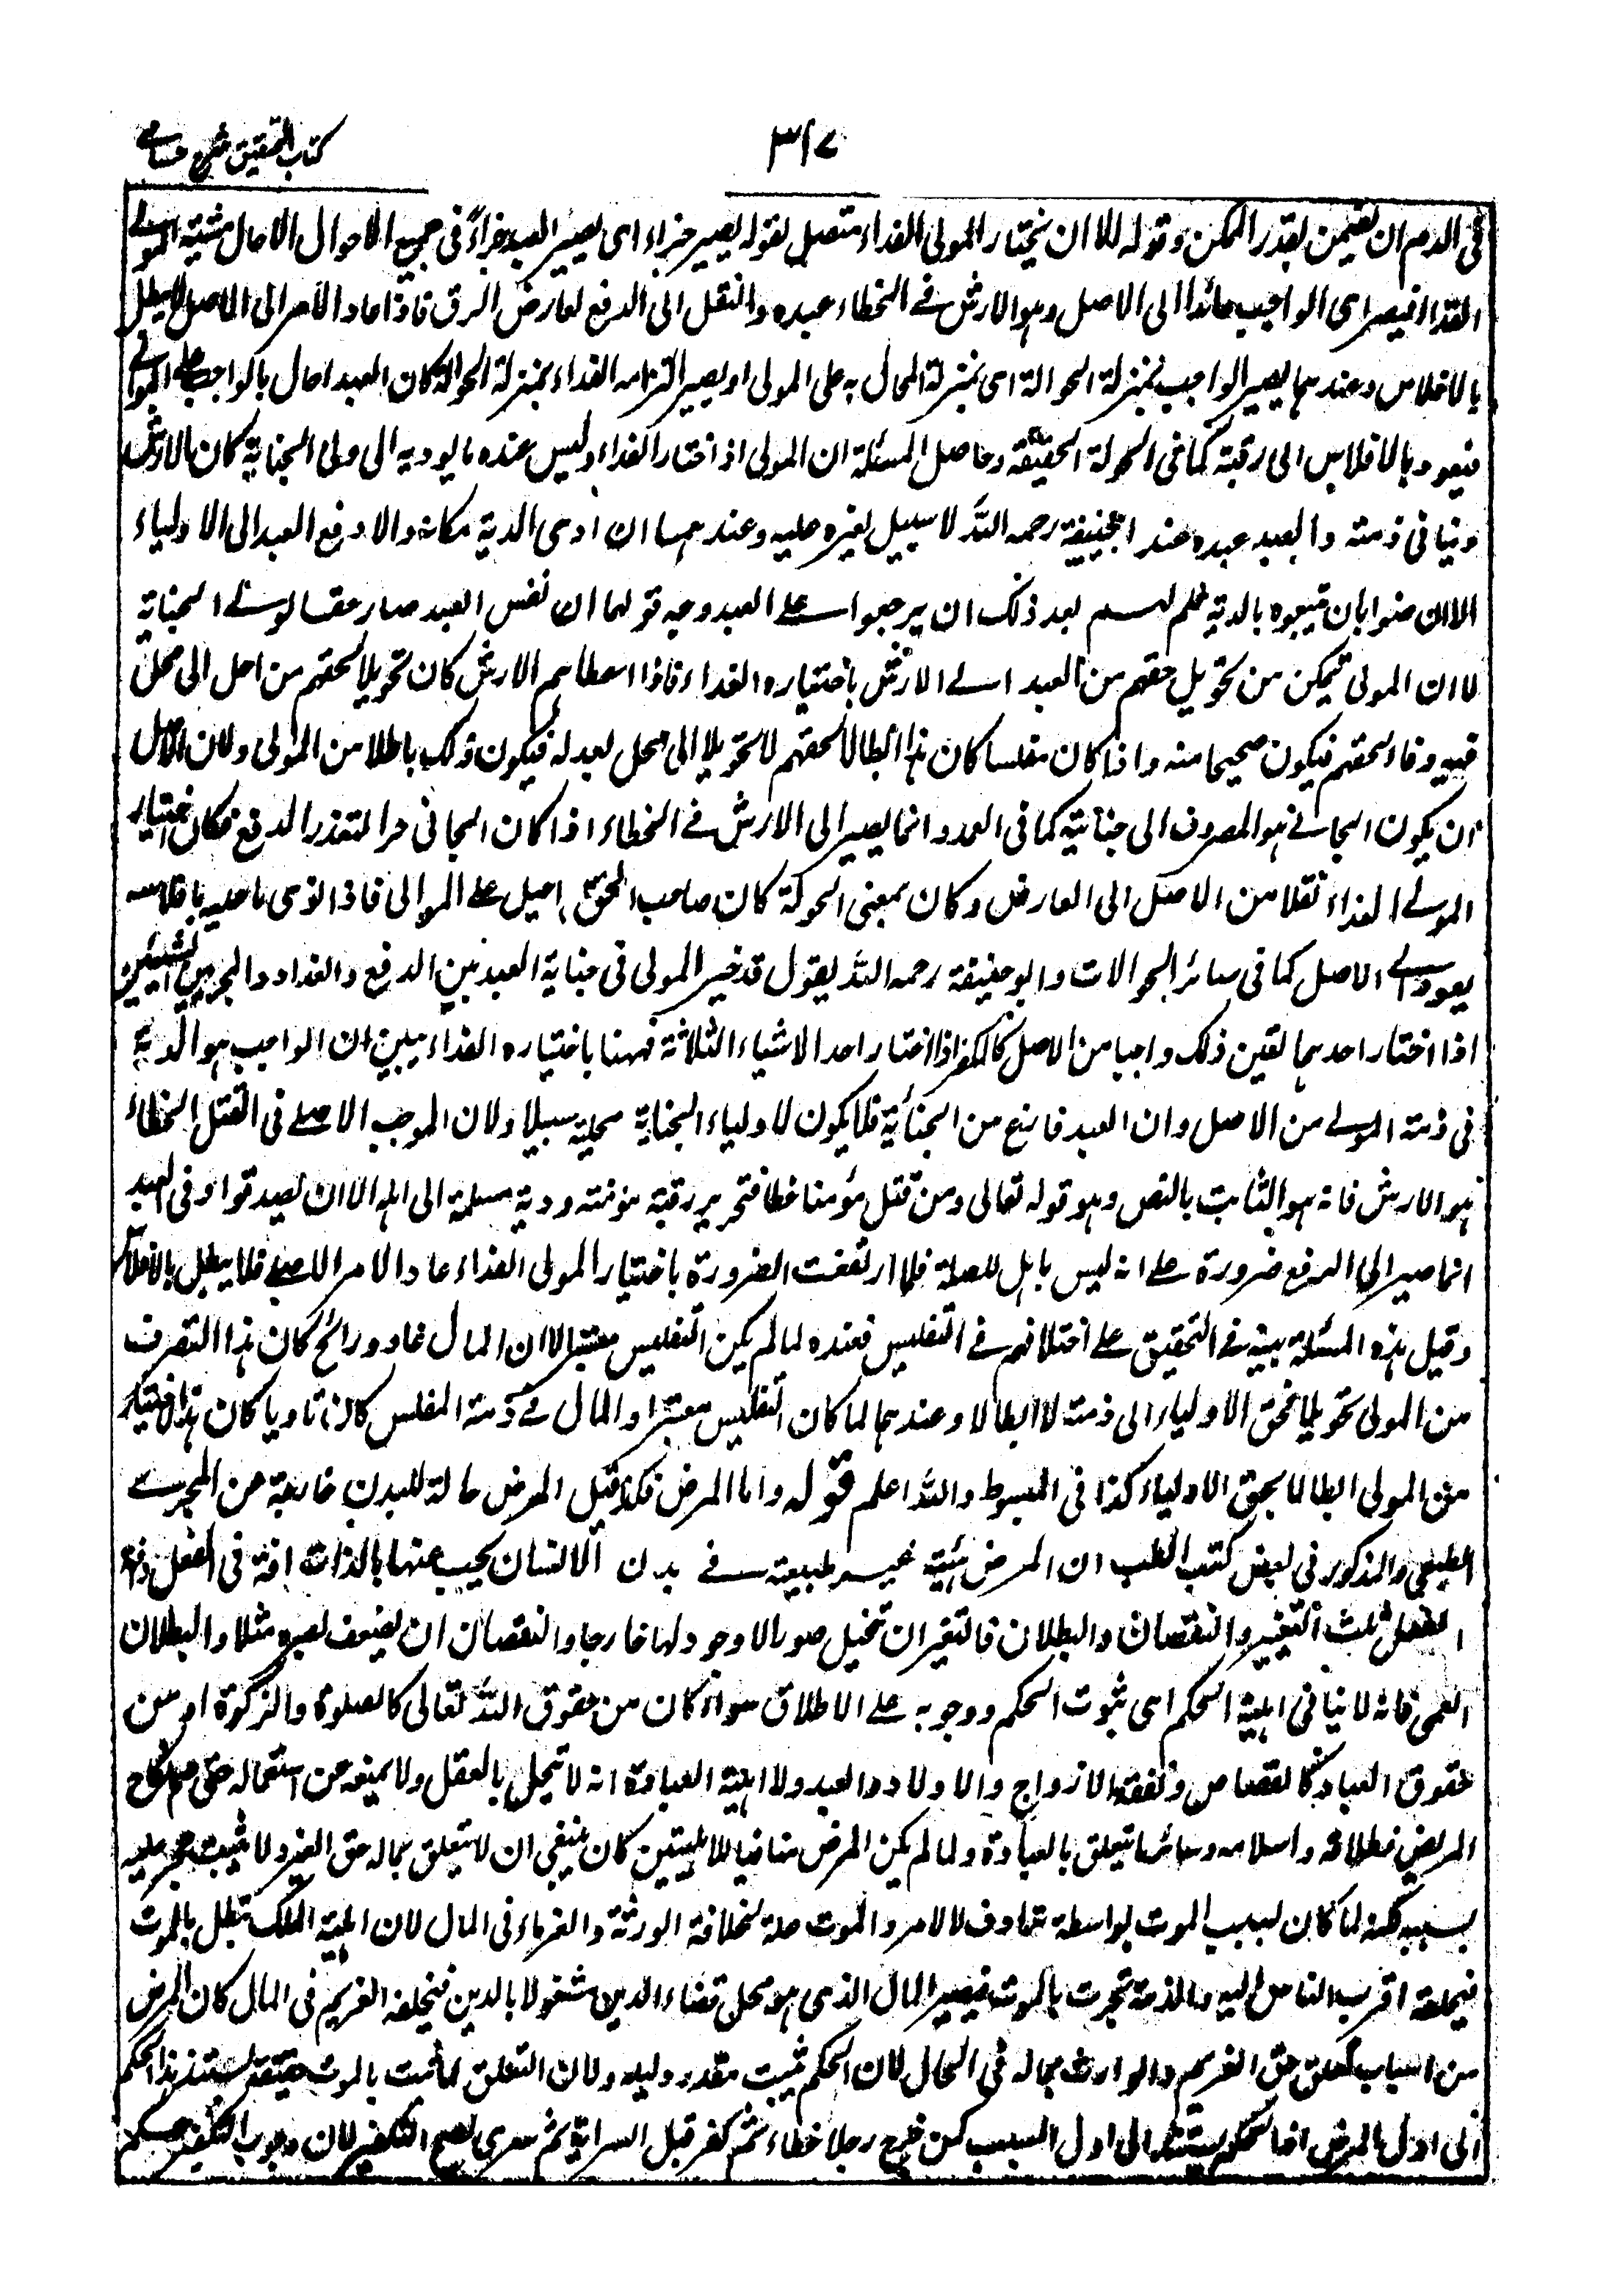 كتاب التحقيق شرح حسامى
٣١٧
فى الدم ان يضمن بقدر الممكن وقوله الا ان يختار المولى الفداء متصل بقوله يصير جزاء اى يصير العبد جزاءً فى جميع الاحوال الا حال مشية المولى
الفداء فيصير اى الواجب عائدا الى الاصل وهو الارش فى الخطاء عبده والنقل الى الدفع لعارض الرق فاذا عاد الأمر الى الاصل لا يبطل
بالافلاس وعندهما يصير الواجب بمنزلة الحوالة اى بمنزلة المحال به على المولى او يصير التزامه الفداء بمنزلة الحوالة كان العبد احال بالواجب على المولى
فيعود بالافلاس الى رقبته كما فى الحوالة الحقيقة وحاصل المسئلة ان المولى اذا اختار الفداء وليس عنده ما يوديه الى ولى الجناية كان الارش
دينا فى ذمته والعبد عبده عند ابيحنيفة رحمه الله لا سبيل لغيره عليه وعندهما ان ادى الدية مكانه والا دفع العبد الى الاولياء
الا ان رضوا بان يتبعوه بالدية فلم لهم بعد ذلك ان يرجعوا على العبد وجه قولهما ان نفس العبد صار حقا لولى الجناية
لا ان المولى تمكن من تحويل حقهم من العبد الى الارش باختياره الفداء فاذا اعطاهم الارش كان تحويلا لحقهم من محل الى محل
فيه وفاء لحقهم فيكون صحيحا منه واذا كان مفلسا كان هذا ابطالا لحقهم لا تحويلا الى محل يعدله فيكون ذلك باطلا من المولى ولان الاصل
ان يكون الجانى هو المصروف الى جنايته كما فى العمد وانما يصير الى الارش فى الخطاء اذا كان الجانى حرا لتعذر الدفع فكان اختيار
المولى الفداء نقلا من الاصل الى العارض وكان بمعنى الحوالة كان صاحب الحق احيل على المولى فاذا توى ما عليه بافلاسه
يعود الى الاصل كما فى سائر الحوالات وابو حنيفة رحمه الله يقول قد خير المولى فى جناية العبد بين الدفع والفداء والمخير بين الشيئين
اذا اختار احدهما تعين ذلك واجبا من الاصل كالمكفر اذا اختار احد الاشياء الثلاثة فههنا باختياره الفداء يبين ان الواجب هو الدية
فى ذمته المولى من الاصل وان العبد فارغ من الجناية فلا يكون لاولياء الجناية عليه سبيلا ولان الموجب الاصلى فى القتل الخطاء
هو الارش فانه هو الثابت بالنص وهو قوله تعالى ومن قتل مؤمنا خطا فتحرير رقبة مؤمنته ودية مسلمة الى اهله الا ان يصدقوا وفى العبد
انما صير الى الدفع ضرورة على انه ليس باهل للصلة فلما ارتفعت الضرورة باختيار المولى الفداء عاد الامر الى الاصل فلا يبطل بالافلاس
وقيل هذه المسئلة مبنية فى التحقيق على اختلافهم فى التفليس فعنده لما لم يكن التفليس معتبرا لان المال غاد ورائح كان هذا التصرف
من المولى تحويلا لحق الاولياء الى ذمته لا ابطالا وعندهما لما كان التفليس معتبرا والمال فى ذمته المفلس كان تاويا كان هذا الاختيار
من المولى ابطالا لحق الاولياء كذا فى المبسوط والله اعلم قوله واما المرض فكذا قيل المرض حالة للبدن خارجة عن المجرى
الطبعى والمذكور فى بعض كتب الطب ان المرض هيئة غير طبيعية فى بدن الانسان يجب عنها بالذات افة فى الفعل وافة
الفعل ثلث التغيير والنقصان والبطلان فالتغير ان تخيل صورا لا وجود لها خارجا والنقصان ان يضعف بصره مثلا والبطلان
العمى فانه لا ينافى اهلية الحكم اى ثبوت الحكم ووجوبه على الاطلاق سواء كان من حقوق الله تعالى كالصلوة والزكوة او من
حقوق العباد كالقصاص ونفقة الازواج والاولاد والعبد ولا اهلية العبادة انه لا تخل بالعقل ولا يمنعه عن استعماله حتى صح نكاح
المريض وطلاقه واسلامه وسائر ما يتعلق بالعبادة ولما لم يكن المرض منافيا للاهليتين كان ينبغى ان لا يتعلق بماله حق الغير ولا يثبت حجر عليه
بسببه لكنه لما كان لسبب الموت بواسطة ترادف الالام والموت علة لخلافة الورثة والغرماء فى المال لان اهلية الملك تبطل بالموت
فيخلفه اقرب الناس اليه والذمة تخرب بالموت فيصير المال الذى هو محل قضاء الدين مشغولا بالدين فيخلفه الغريم فى المال كان المرض
من اسباب تعلق حق الغريم والوارث بماله فى الحال لان الحكم يثبت بقدر دليله ولان التعلق لما ثبت بالموت حقيقة يستند هذا الحكم
الى اول المرض اذ الحكم يستند الى اول السبب كمن جرح رجلا خطاء ثم كفر قبل السراية ثم سرى يصح التكفير لان وجوب التكفير حكم